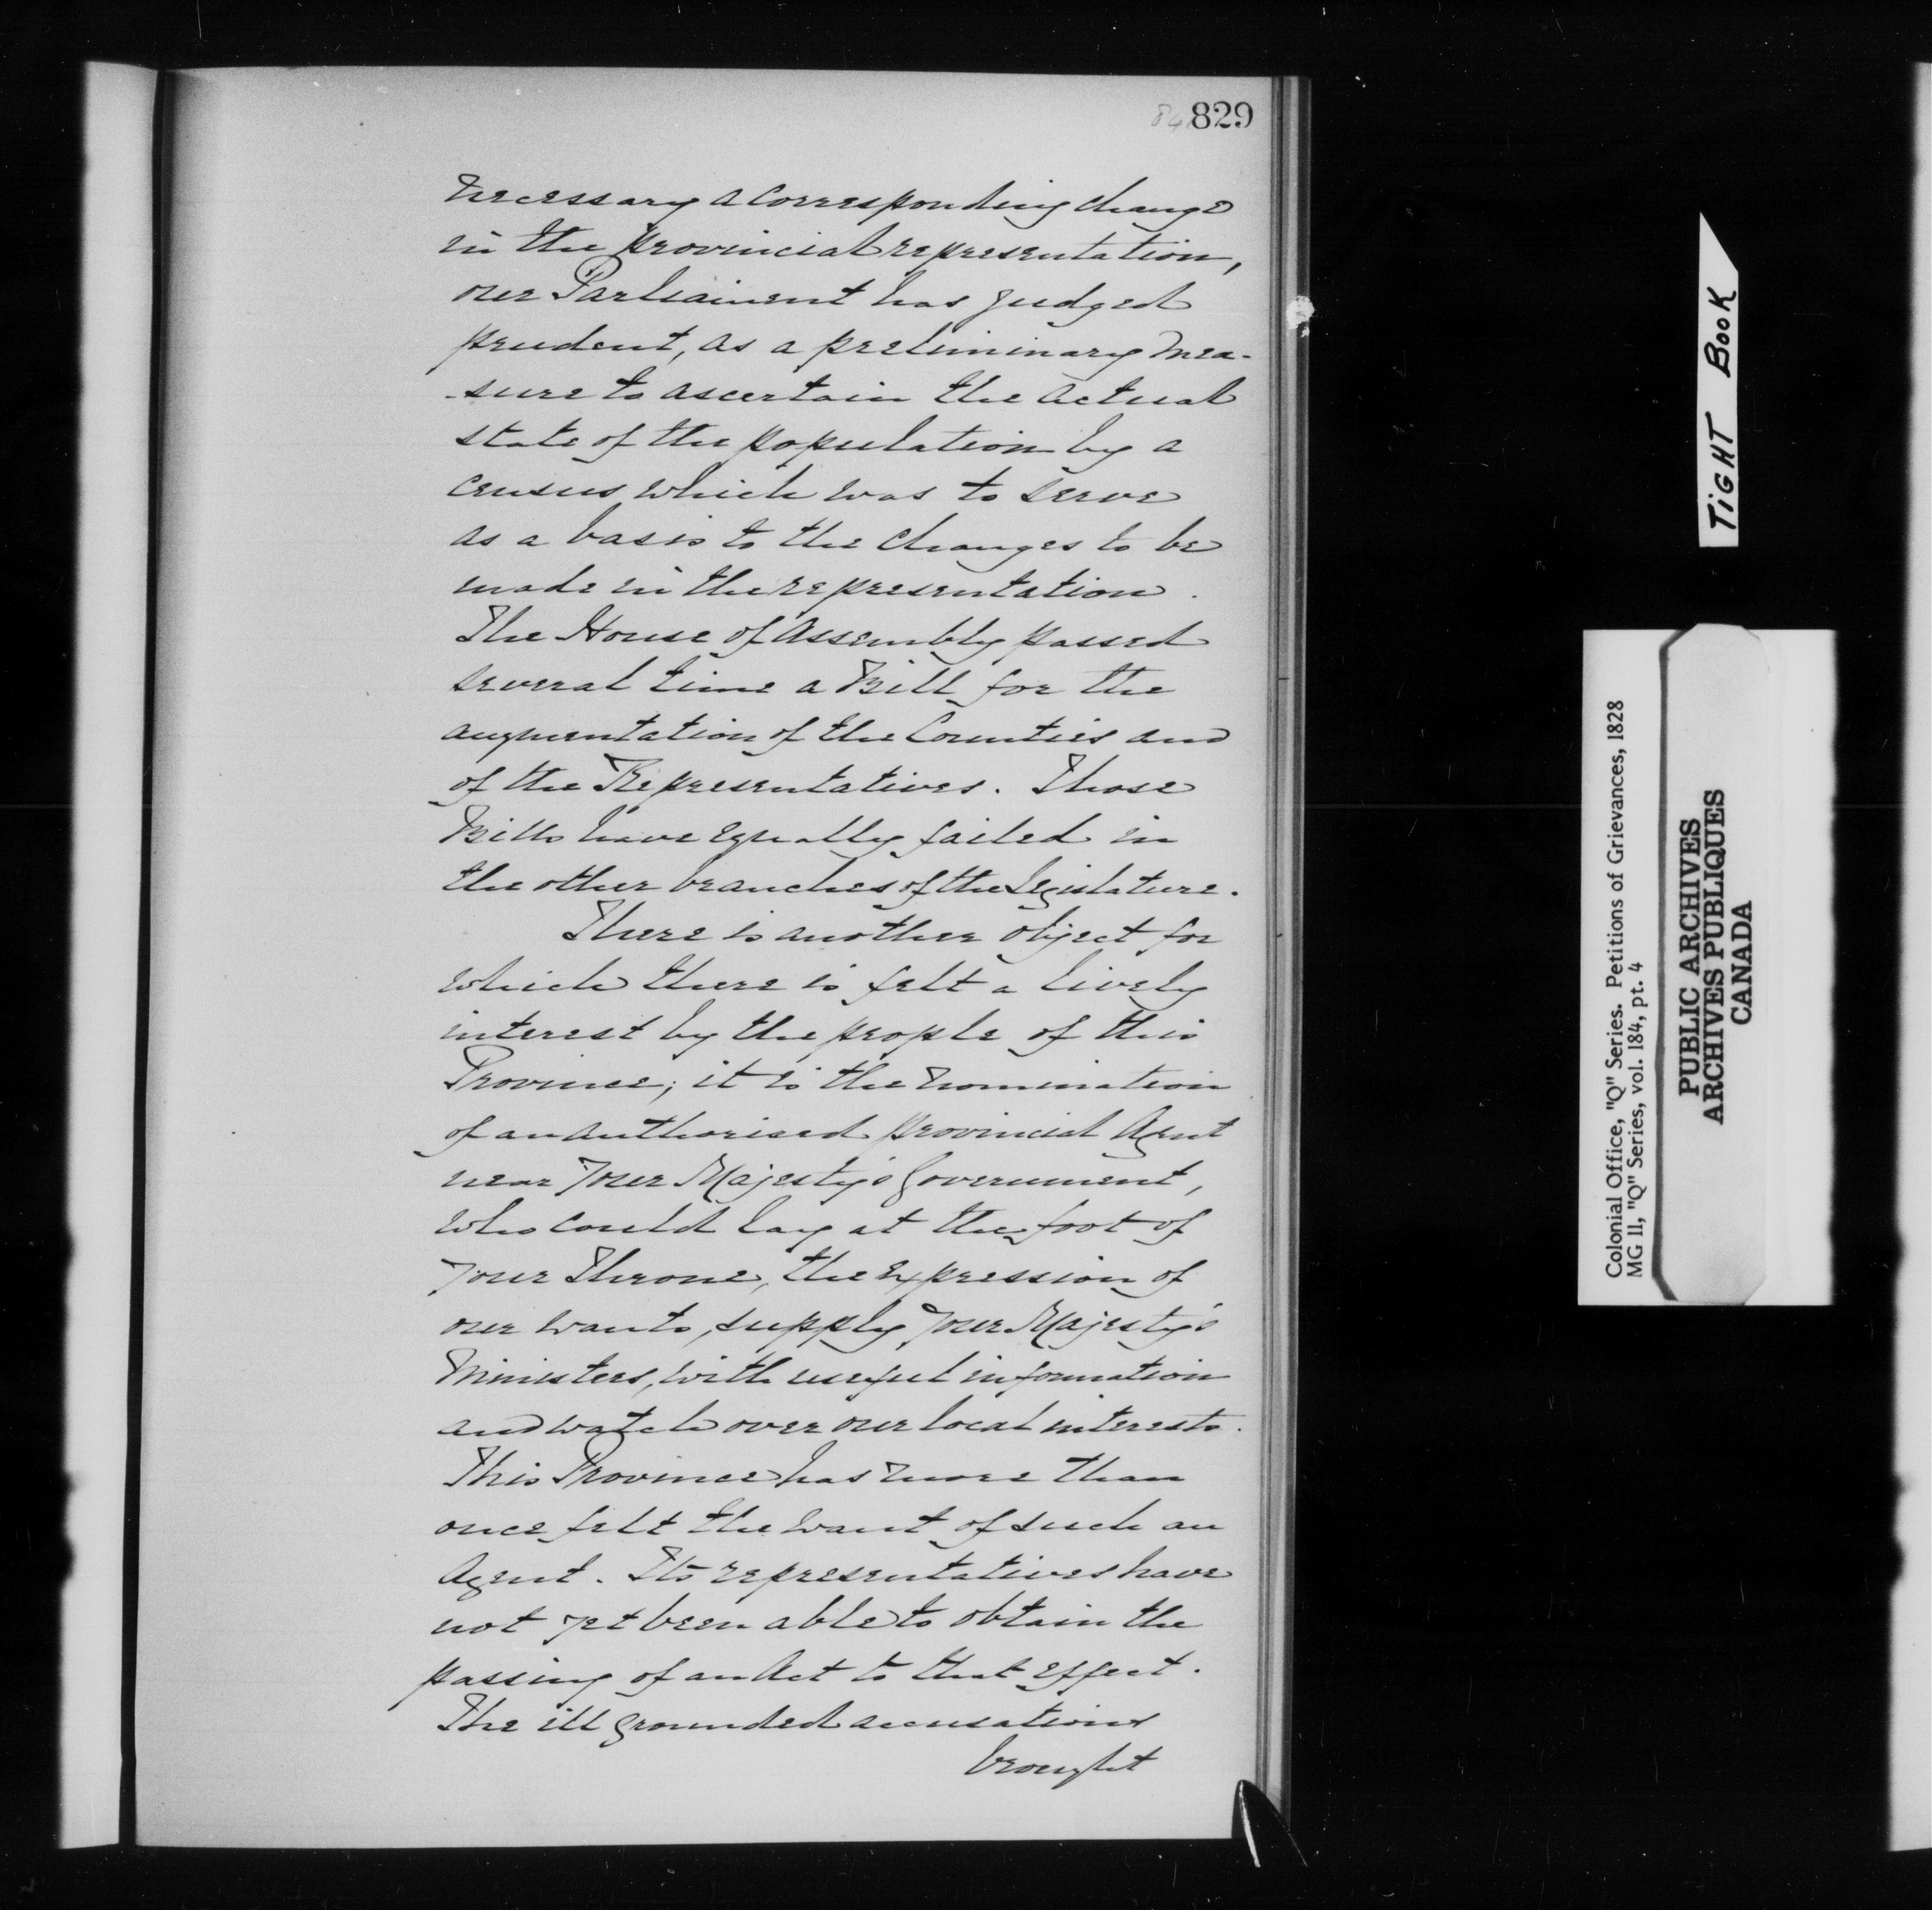 829
necessary a corresponding change
in the provincial representation,
our Parliament has judged
prudent, as a preliminary mea-
-sure to ascertain the actual
state of the population by a
census which was to serve
as a basis to the changes to be
made in the representation.
The House of Assembly passed
several time a Bill for the
augmentation of the Counties and
of the Representatives. Those
Bills have equally failed in
the other branches of the Legislature.
There is another object for
which there is felt a lively
interest by the people of this
Province; it is the nomination
of an authorised provincial Agent
near Your Majesty's Government,
who could lay at the foot of
Your Throne, the expression of
our wants, supply Your Majesty's
Ministers, with useful information
and watch over our local interests.
This Province has more than
once felt the want of such an
Agent. Its representatives have
not yet been able to obtain the
passing of an Act to that effect.
The ill grounded accusations
brought
TIGHT BOOK
Colonial Office, "Q" Series. Petitions of Grievances, 1828
MG 11, "Q" Series, vol. 184, pt. 4
PUBLIC ARCHIVES
ARCHIVES PUBLIQUES
CANADA